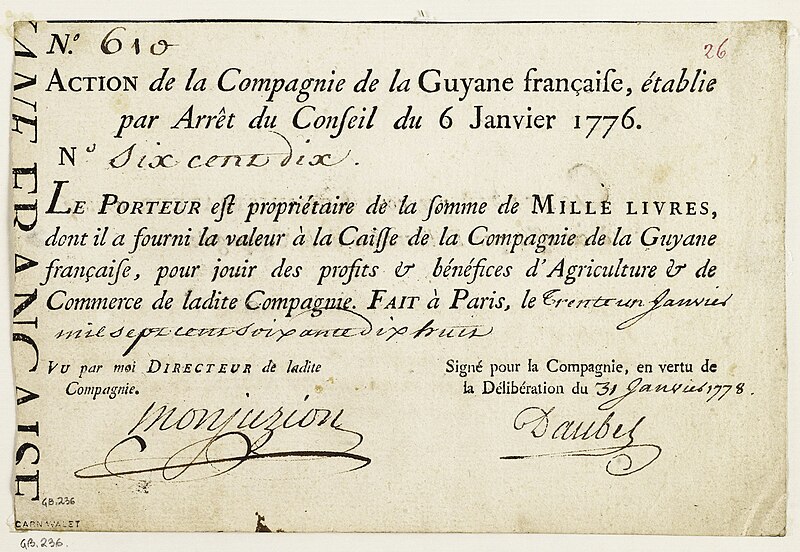 N.º 610
26
ACTION de la Compagnie de la Guyane françaiſe, établie
par Arrêt du Conſeil du 6 Janvier 1776.
Nº Six cent dix.
LE PORTEUR eſt propriétaire de la ſomme de MILLE LIVRES,
dont il a fourni la valeur à la Caiſſe de la Compagnie de la Guyane
françaiſe, pour jouir des profits & bénéfices d'Agriculture & de
Commerce de ladite Compagnie. FAIT à Paris, le trente un Janvier
mil sept cent soixante dix huit
VU par moi DIRECTEUR de ladite
Compagnie.
Signé pour la Compagnie, en vertu de
la Délibération du 31 Janvier 1778.
Monjuzion
Daubet
FRANÇAISE
GB.236
CARNAVALET
GB.236.